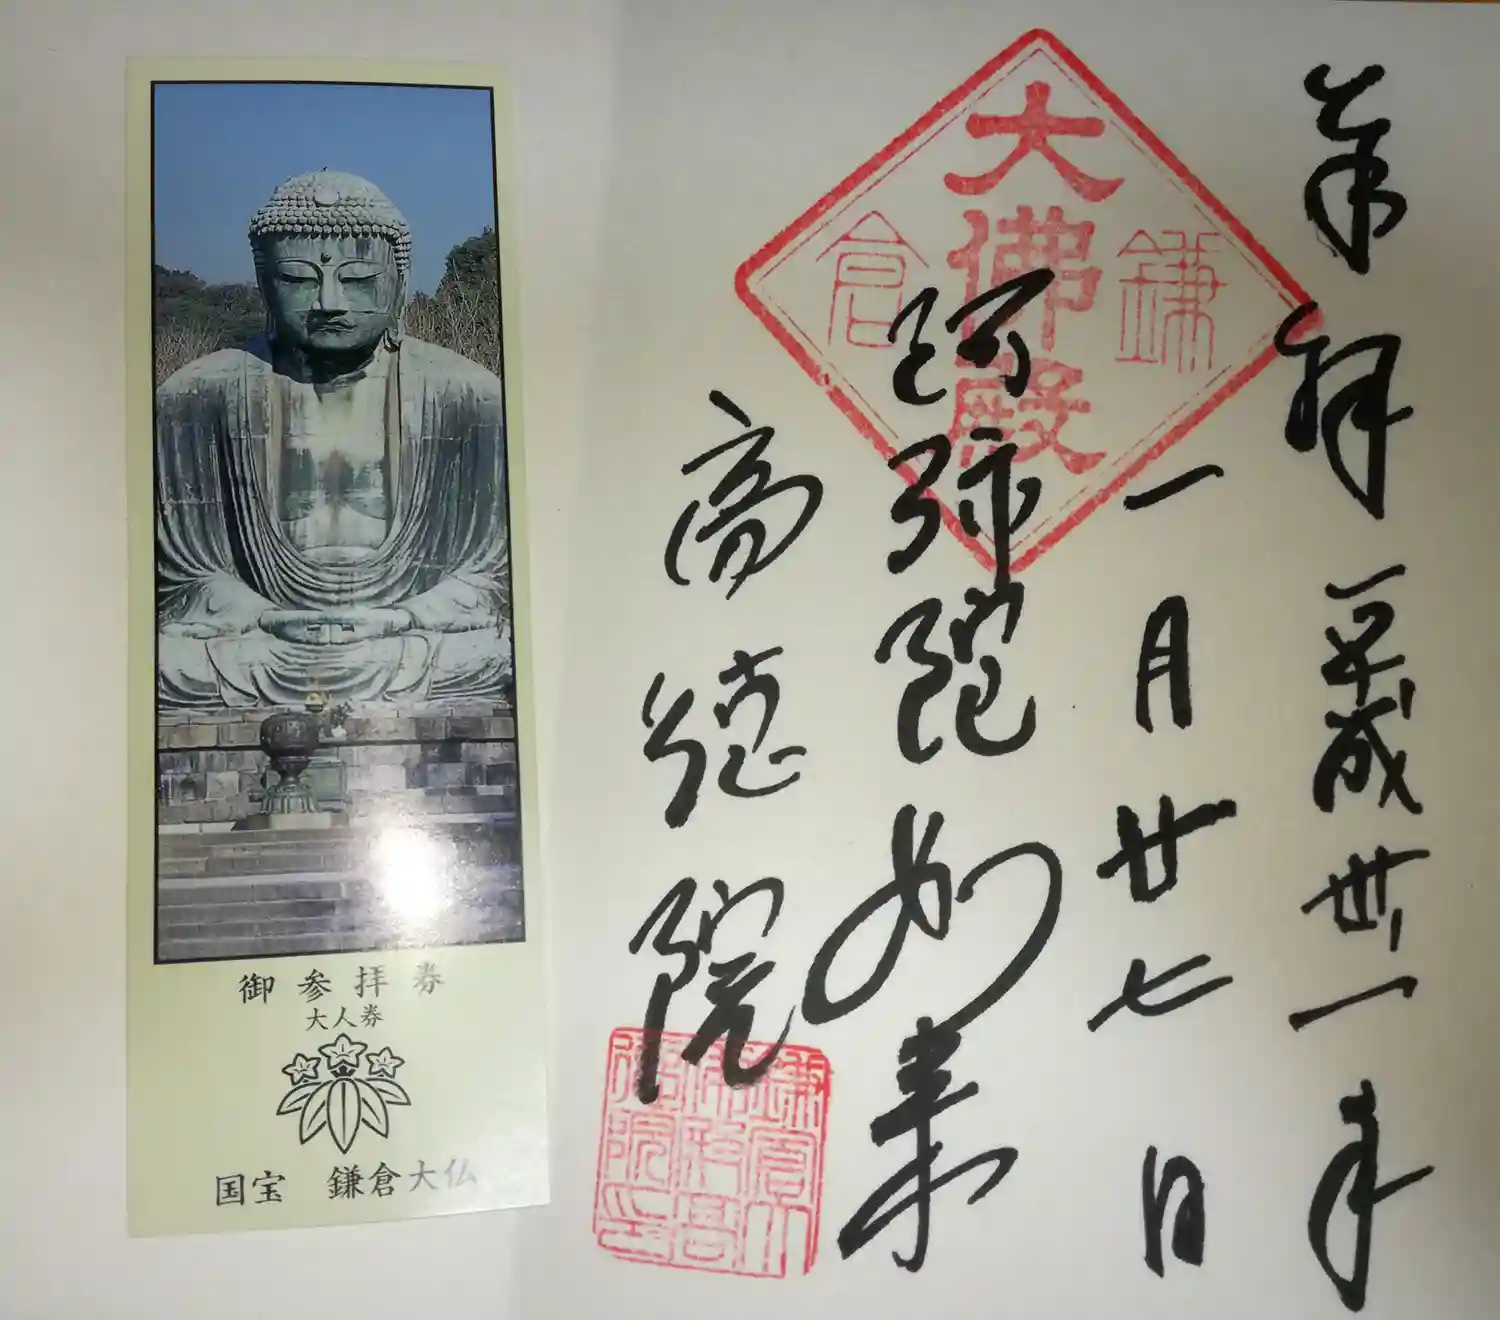 御参拝券
大人券
国宝 鎌倉大仏
奉拝 平成卅一年
一月廿七日
大佛殿
鎌倉
阿弥陀如来
高徳院